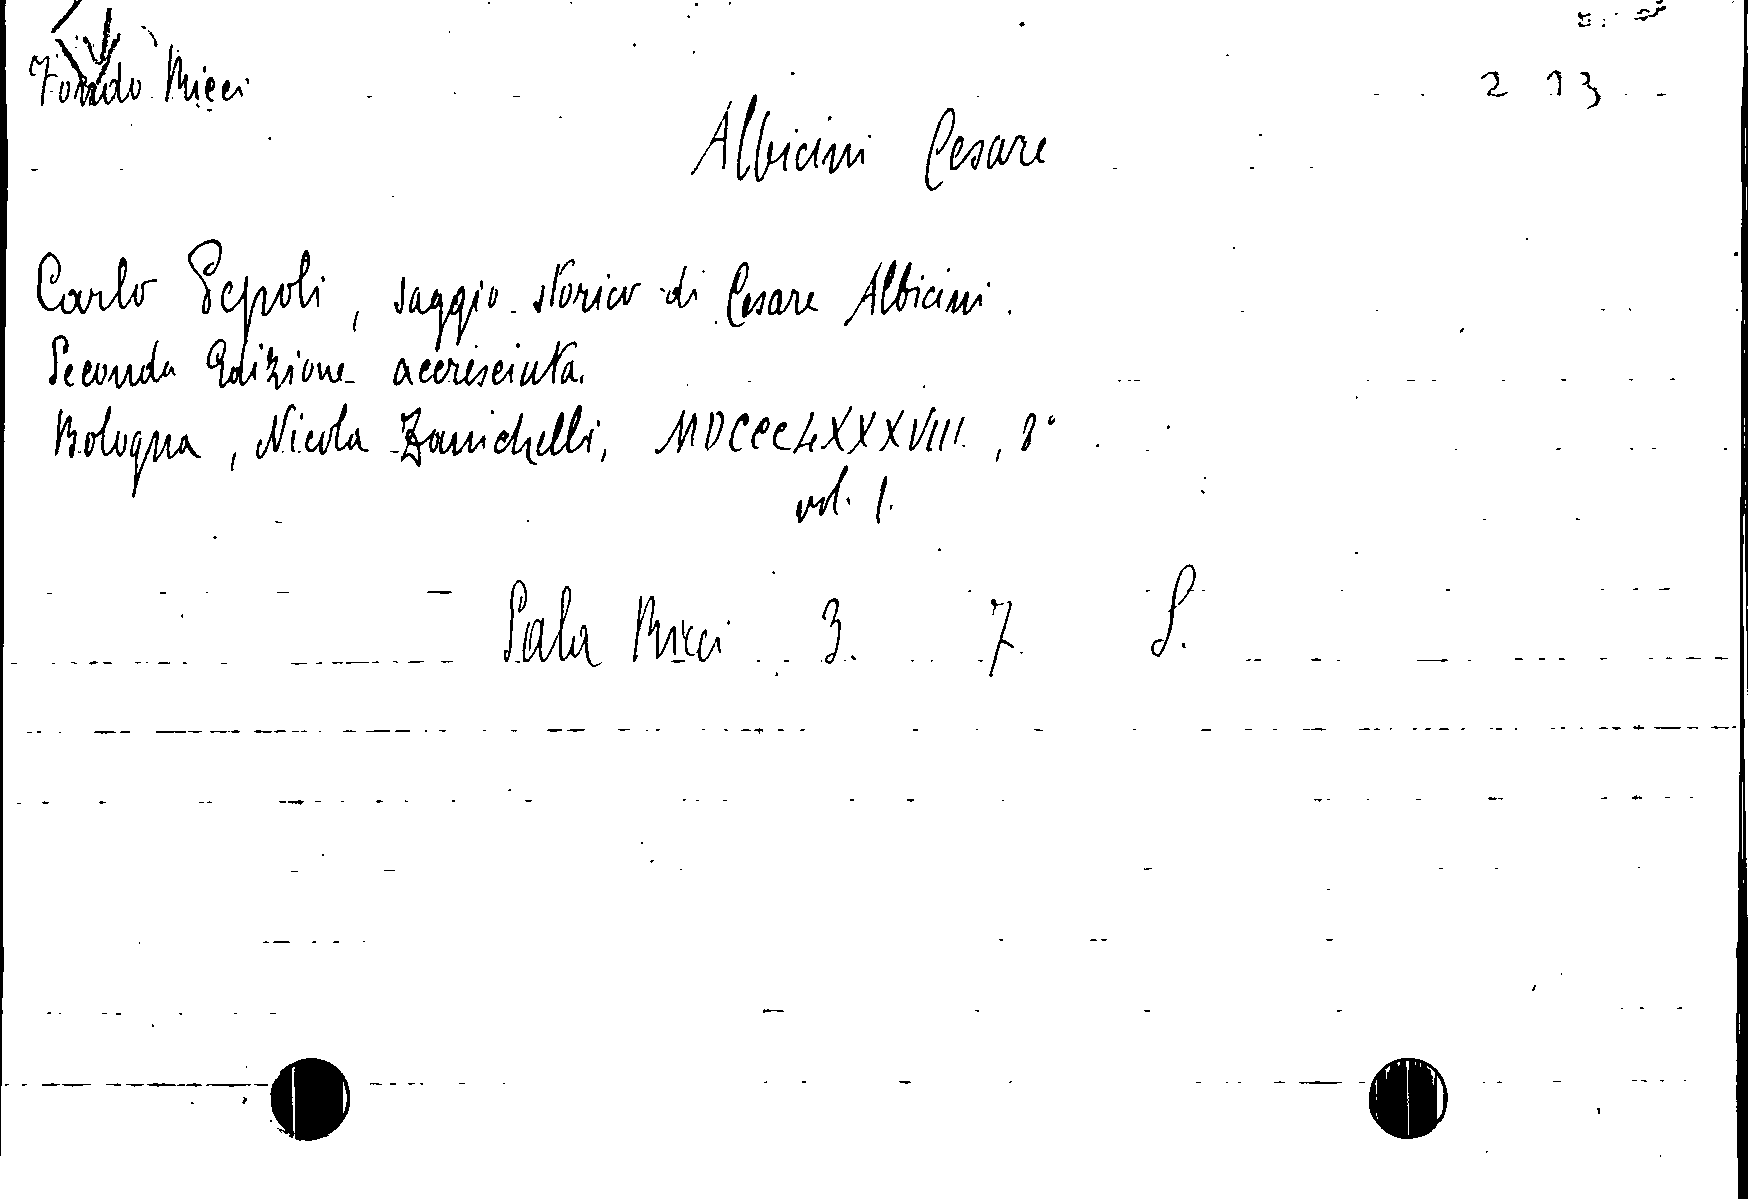 Fondo Ricci
2 13
Albicini Cesare
Carlo Pepoli, saggio storico di Cesare Albicini.
Seconda Edizione accresciuta.
Bologna, Nicola Zanichelli, MDCCCLXXXVIII, 8°
vol. 1.
Sala Ricci 3. 7 S.